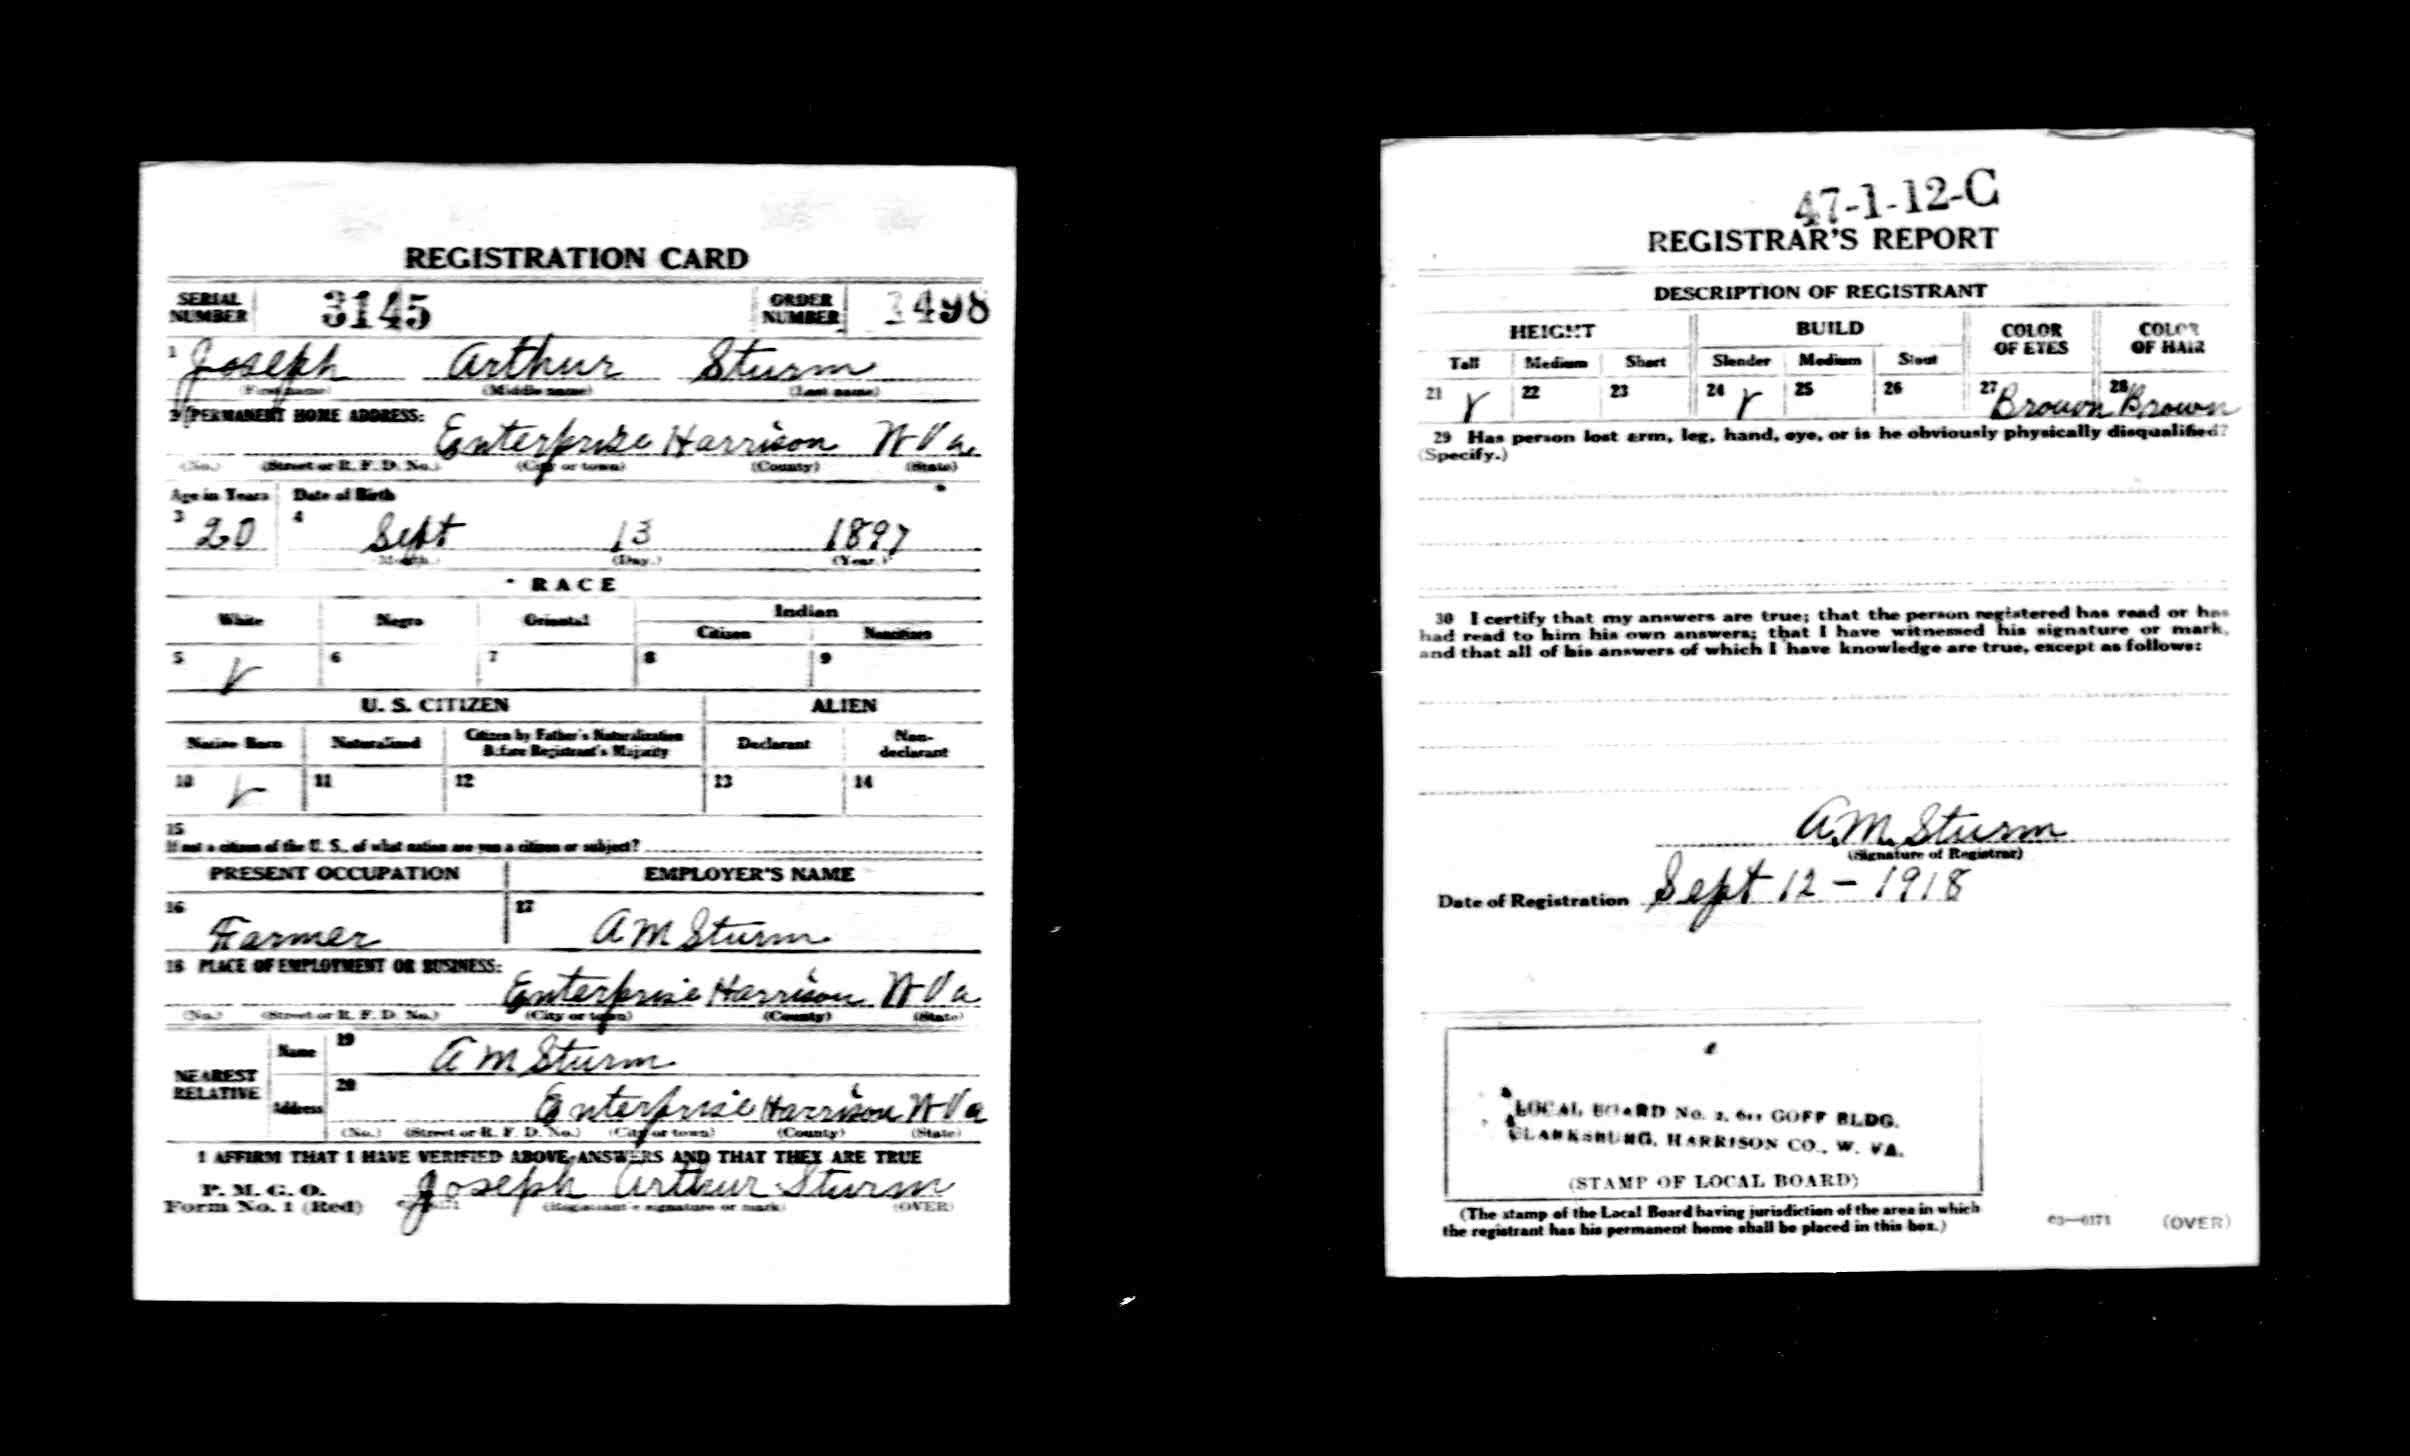 REGISTRATION CARD
SERIAL NUMBER 3145 ORDER NUMBER 3498
1 Joseph Arthur Sturm
(First name) (Middle name) (Last name)
2 PERMANENT HOME ADDRESS:
Enterprise Harrison W Va.
(No.) (Street or R. F. D. No.) (City or town) (County) (State)
Age in Years Date of Birth
3 20 4 Sept 13 1897
(Month.) (Day.) (Year.)
RACE
White Negro Oriental Indian
Citizen Noncitizen
5 6 7 8 9
U. S. CITIZEN ALIEN
Native Born Naturalized Citizen by Father's Naturalization Before Registrant's Majority Declarant Non-declarant
10 11 12 13 14
15
If not a citizen of the U. S., of what nation are you a citizen or subject?
PRESENT OCCUPATION EMPLOYER'S NAME
16 Farmer 17 A M Sturm
18 PLACE OF EMPLOYMENT OR BUSINESS:
Enterprise Harrison W Va
(No.) (Street or R. F. D. No.) (City or town) (County) (State)
NEAREST RELATIVE
Name 19 A M Sturm
Address 20 Enterprise Harrison W Va
(No.) (Street or R. F. D. No.) (City or town) (County) (State)
I AFFIRM THAT I HAVE VERIFIED ABOVE ANSWERS AND THAT THEY ARE TRUE
P. M. G. O.
Form No. 1 (Red) Joseph Arthur Sturm
(Registrant's signature or mark) (OVER)
47-1-12-C
REGISTRAR'S REPORT
DESCRIPTION OF REGISTRANT
HEIGHT BUILD COLOR OF EYES COLOR OF HAIR
Tall Medium Short Slender Medium Stout
21 22 23 24 25 26 27 Brown 28 Brown
29 Has person lost arm, leg, hand, eye, or is he obviously physically disqualified?
(Specify.)
30 I certify that my answers are true; that the person registered has read or has
had read to him his own answers; that I have witnessed his signature or mark,
and that all of his answers of which I have knowledge are true, except as follows:
A. M. Sturm
(Signature of Registrar)
Date of Registration Sept 12 - 1918
LOCAL BOARD No. 2, 611 GOFF BLDG.
CLARKSBURG, HARRISON CO., W. VA.
(STAMP OF LOCAL BOARD)
(The stamp of the Local Board having jurisdiction of the area in which
the registrant has his permanent home shall be placed in this box.)
03—6171 (OVER)